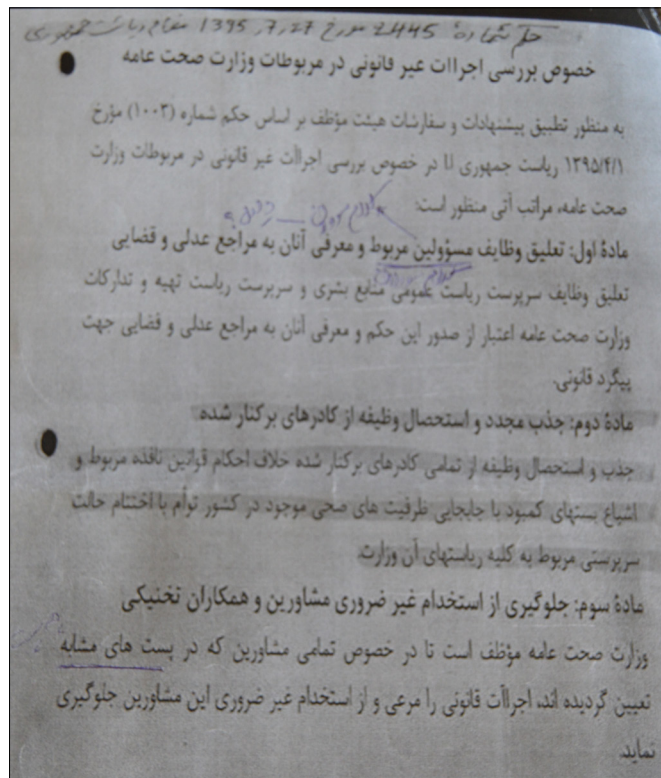 حکم شماره 2445 مورخ 1395,7,27 مقام ریاست جمهوری
خصوص بررسی اجراات غیر قانونی در مربوطات وزارت صحت عامه
به منظور تطبیق پیشنهادات و سفارشات هیئت مؤظف بر اساس حکم شماره (۱۰۰۳) مؤرخ
۱۳۹۵/۴/۱ ریاست جمهوری ا.ا در خصوص بررسی اجراآت غیر قانونی در مربوطات وزارت
صحت عامه، مراتب آتی منظور است:
مادهٔ اول: تعلیق وظایف مسؤولین مربوط و معرفی آنان به مراجع عدلی و قضایی
تعلیق وظایف سرپرست ریاست عمومی منابع بشری و سرپرست ریاست تهیه و تدارکات
وزارت صحت عامه اعتبار از صدور این حکم و معرفی آنان به مراجع عدلی و قضایی جهت
پیگرد قانونی.
مادهٔ دوم: جذب مجدد و استحصال وظیفه از کادرهای برکنار شده
جذب و استحصال وظیفه از تمامی کادرهای برکنار شده خلاف احکام قوانین نافذه مربوط و
اشباع بستهای کمبود با جابجایی ظرفیت های صحی موجود در کشور توأم با اختتام حالت
سرپرستی مربوط به کلیه ریاستهای آن وزارت.
مادهٔ سوم: جلوگیری از استخدام غیر ضروری مشاورین و همکاران تخنیکی
وزارت صحت عامه مؤظف است تا در خصوص تمامی مشاورین که در پست های مشابه
تعیین گردیده اند، اجراآت قانونی را مرعی و از استخدام غیر ضروری این مشاورین جلوگیری
نماید.